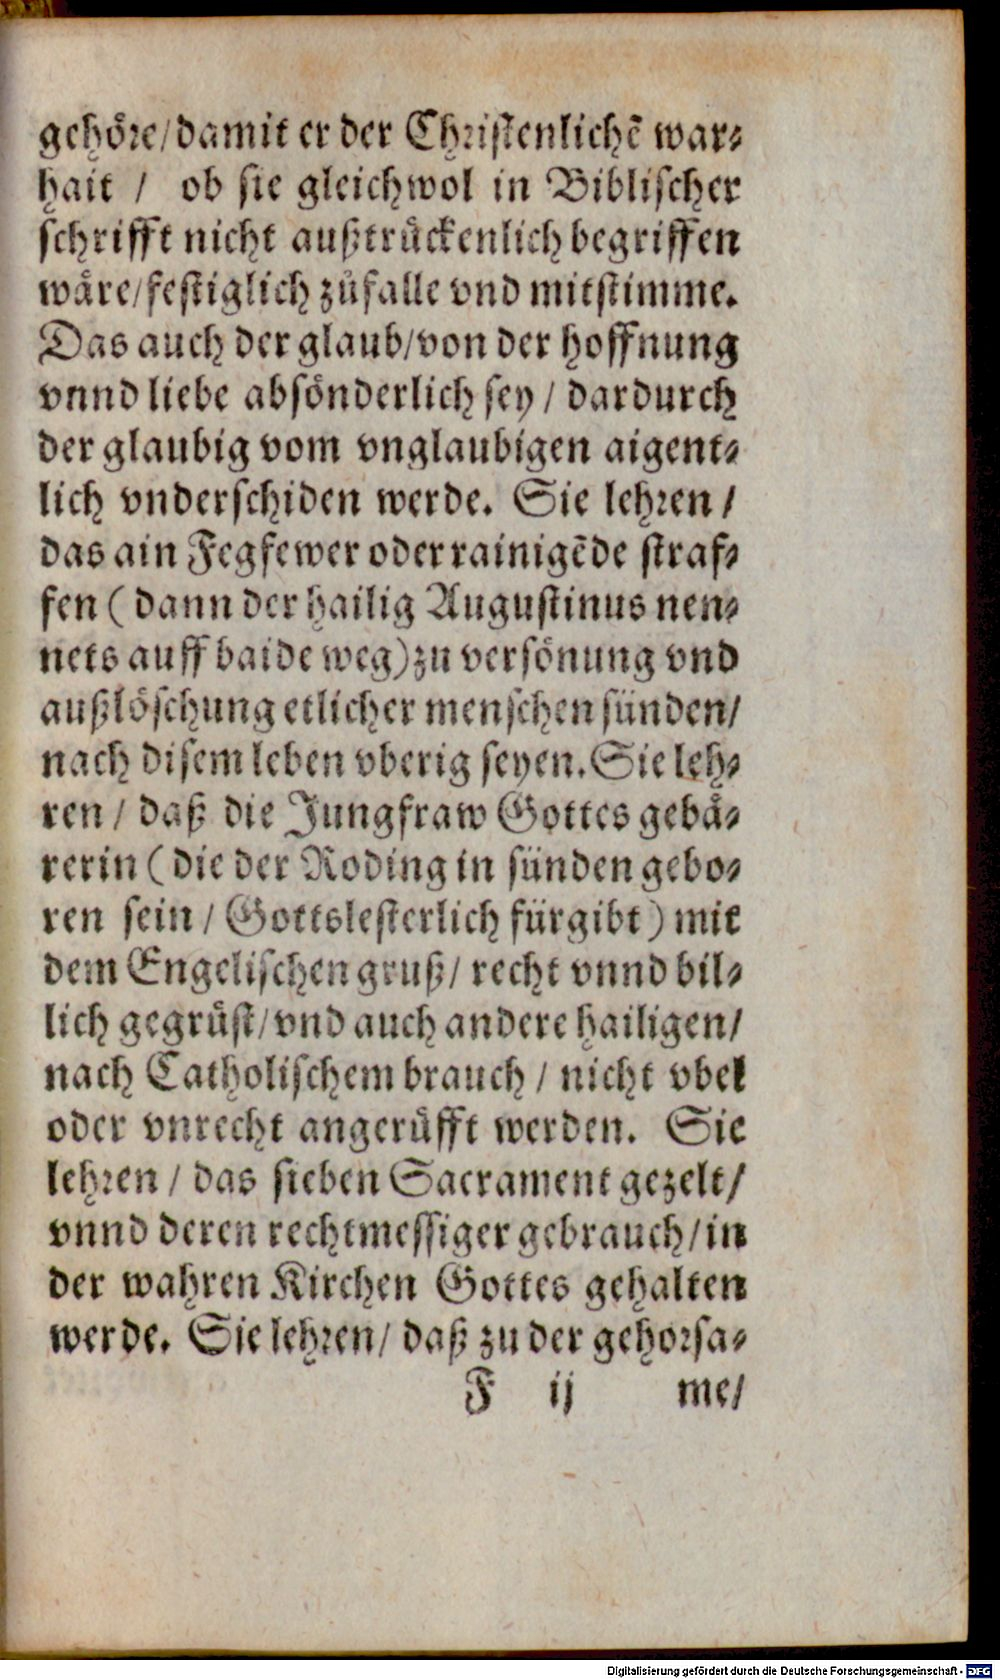 gehöre/damit er der Christenlichẽ war-
hait / ob sie gleichwol in Biblischer
schrifft nicht außtrückenlich begriffen
wäre/festiglich zůfalle vnd mitstimme.
Das auch der glaub/von der hoffnung
vnnd liebe absönderlich sey / dardurch
der glaubig vom vnglaubigen aigent-
lich vnderschiden werde. Sie lehren /
das ain Fegfewer oder rainigẽde straf-
fen ( dann der hailig Augustinus nen-
nets auff baide weg) zu versönung vnd
außlöschung etlicher menschen sünden/
nach disem leben vberig seyen. Sie leh-
ren / daß die Jungfraw Gottes gebä-
rerin ( die der Roding in sünden gebo-
ren sein / Gottslesterlich fürgibt ) mit
dem Engelischen gruß/ recht vnnd bil-
lich gegrüst/ vnd auch andere hailigen/
nach Catholischem brauch / nicht vbel
oder vnrecht angerůfft werden. Sie
lehren / das sieben Sacrament gezelt/
vnnd deren rechtmessiger gebrauch/ in
der wahren Kirchen Gottes gehalten
werde. Sie lehren/ daß zu der gehorsa-
F ij me/
Digitalisierung gefördert durch die Deutsche Forschungsgemeinschaft - DFG